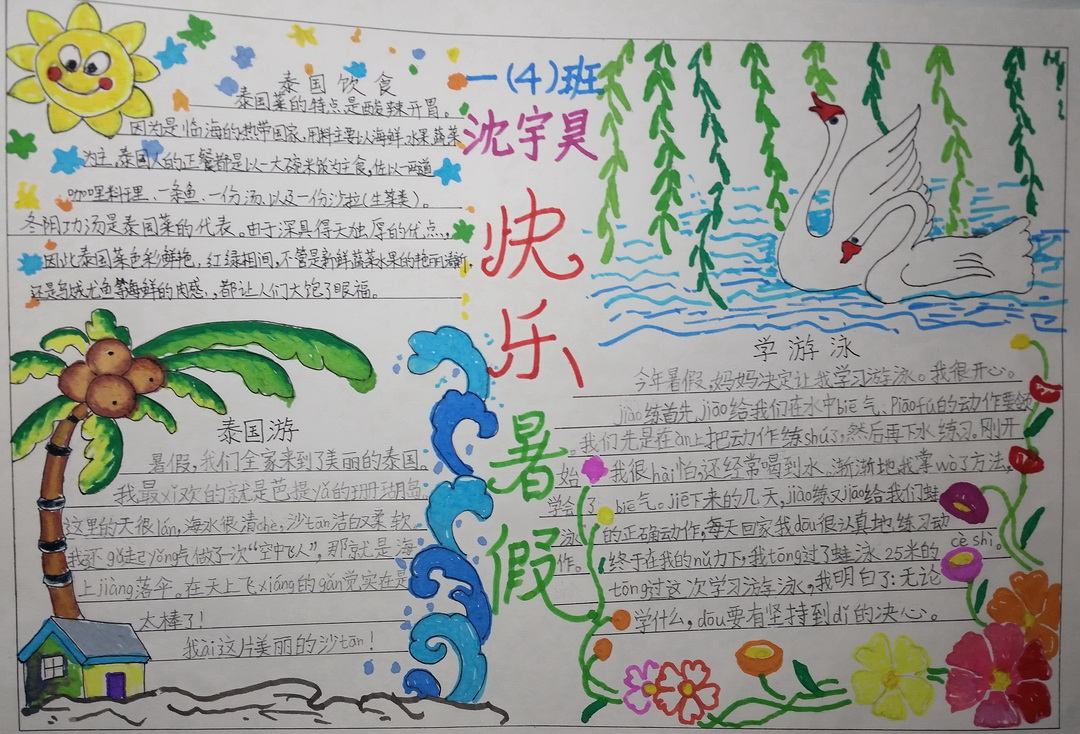 一(4)班
沈宇昊
快乐暑假
泰国饮食
泰国菜的特点是酸辣开胃。
因为是临海的热带国家,用料主要以海鲜水果蔬菜
为主,泰国人的正餐都是以一大碗米饭为主食,佐以一两道
咖哩料理、一条鱼、一份汤,以及一份沙拉(生菜类)。
冬阴功汤是泰国菜的代表。由于深具得天独厚的优点,
因此泰国菜色彩鲜艳,红绿相间,不管是新鲜蔬菜水果的艳丽清新,
还是乌贼尤鱼等海鲜的肉感,都让人们大饱了眼福。
泰国游
暑假,我们全家来到了美丽的泰国。
我最xǐ欢的就是芭提yǎ的珊瑚岛
这里的天很lán,海水很清chè,沙tān洁白又柔软
我还gǔ起yǒng气做了一次“空中飞人”,那就是海
上jiàng落伞。在天上飞xiáng的gǎn觉实在是
太棒了!
我ài这片美丽的沙tān!
学游泳
今年暑假,妈妈决定让我学习游泳。我很开心。
jiào练首先jiāo给我们在水中biē气、Piāofú的动作要领
。我们先是在àn上把动作练shú了,然后再下水练习。刚开
始 我很hài怕,还经常喝到水,渐渐地我掌wò了方法,
学会了 biē气。jiē下来的几天,jiào练又jiāo给我们蛙
泳 的正确动作,每天回家我dōu很认真地练习动
作。 终于在我的nǔ力下,我tōng过了蛙泳25米的 cè shì。
tōng过这次学习游泳,我明白了:无论
学什么,dōu要有坚持到dǐ的决心。